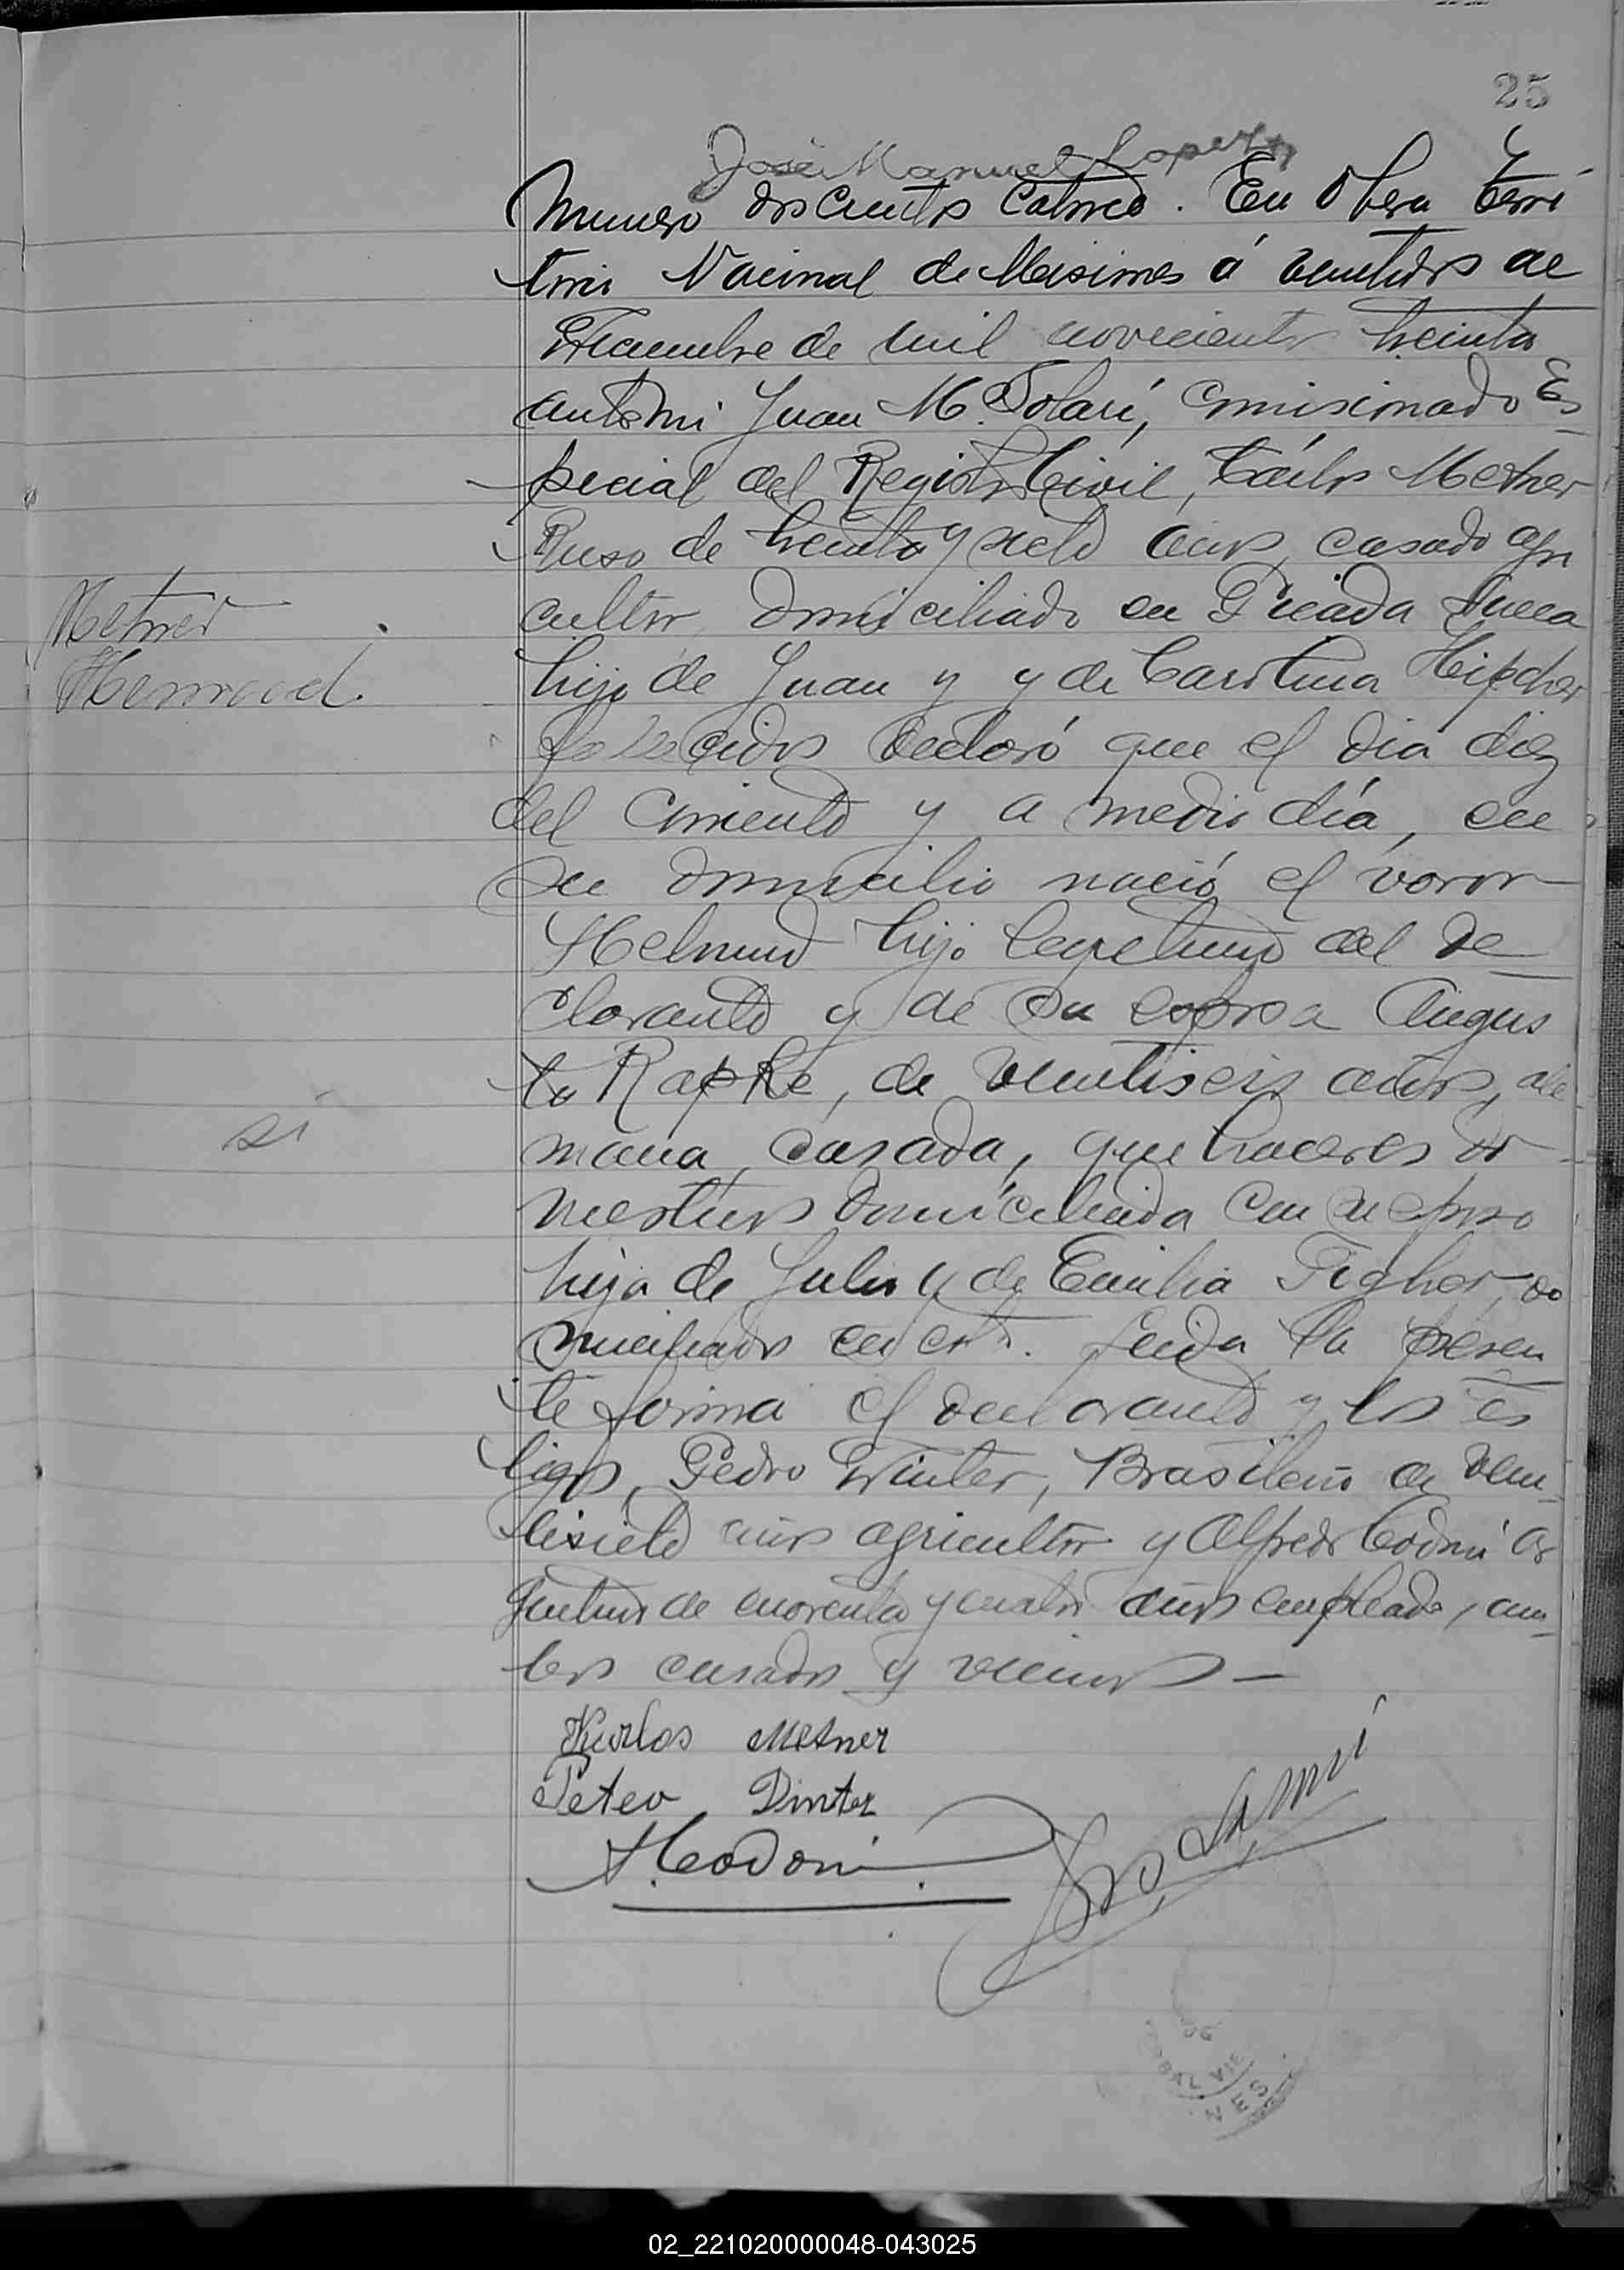 25
José Manuel Lopez
Numero doscientos catorce. En Obera terri
torio Nacional de Misiones á veintidos de
Diciembre de mil novecientos treinta
ante mi Juan M. Solari, comisionado Es
pecial del Registro Civil, Carlos Metner
Ruso de treinta y siete años, casado agri
cultor, domiciliado en Picada Sueca
hijo de Juan y y de Carolina
fallecidos declaró que el dia diez
del corriente y a medio día, en
su domicilio nació el varon
Helmud hijo legitimo del de
clarante y de su esposa Augus
ta Rapke, de veintiseis años, ale
mana, casada, quehaceres do
mesticos domiciliada con su esposo
hija de Julio y de Emilia Figher, do
miciliados en esta. Leida la presen
te firma el declarante y los tes
tigos, Pedro Winter, Brasileño de vein
tisiete años agricultor y Alfredo Codoni ar
gentino de cuarenta y cuatro años empleado, am
bos casados y vecinos —
Metner
si
Karlos Metner
Peter Dinter
A. Codoni
BAL VIE
NES
02_221020000048-043025